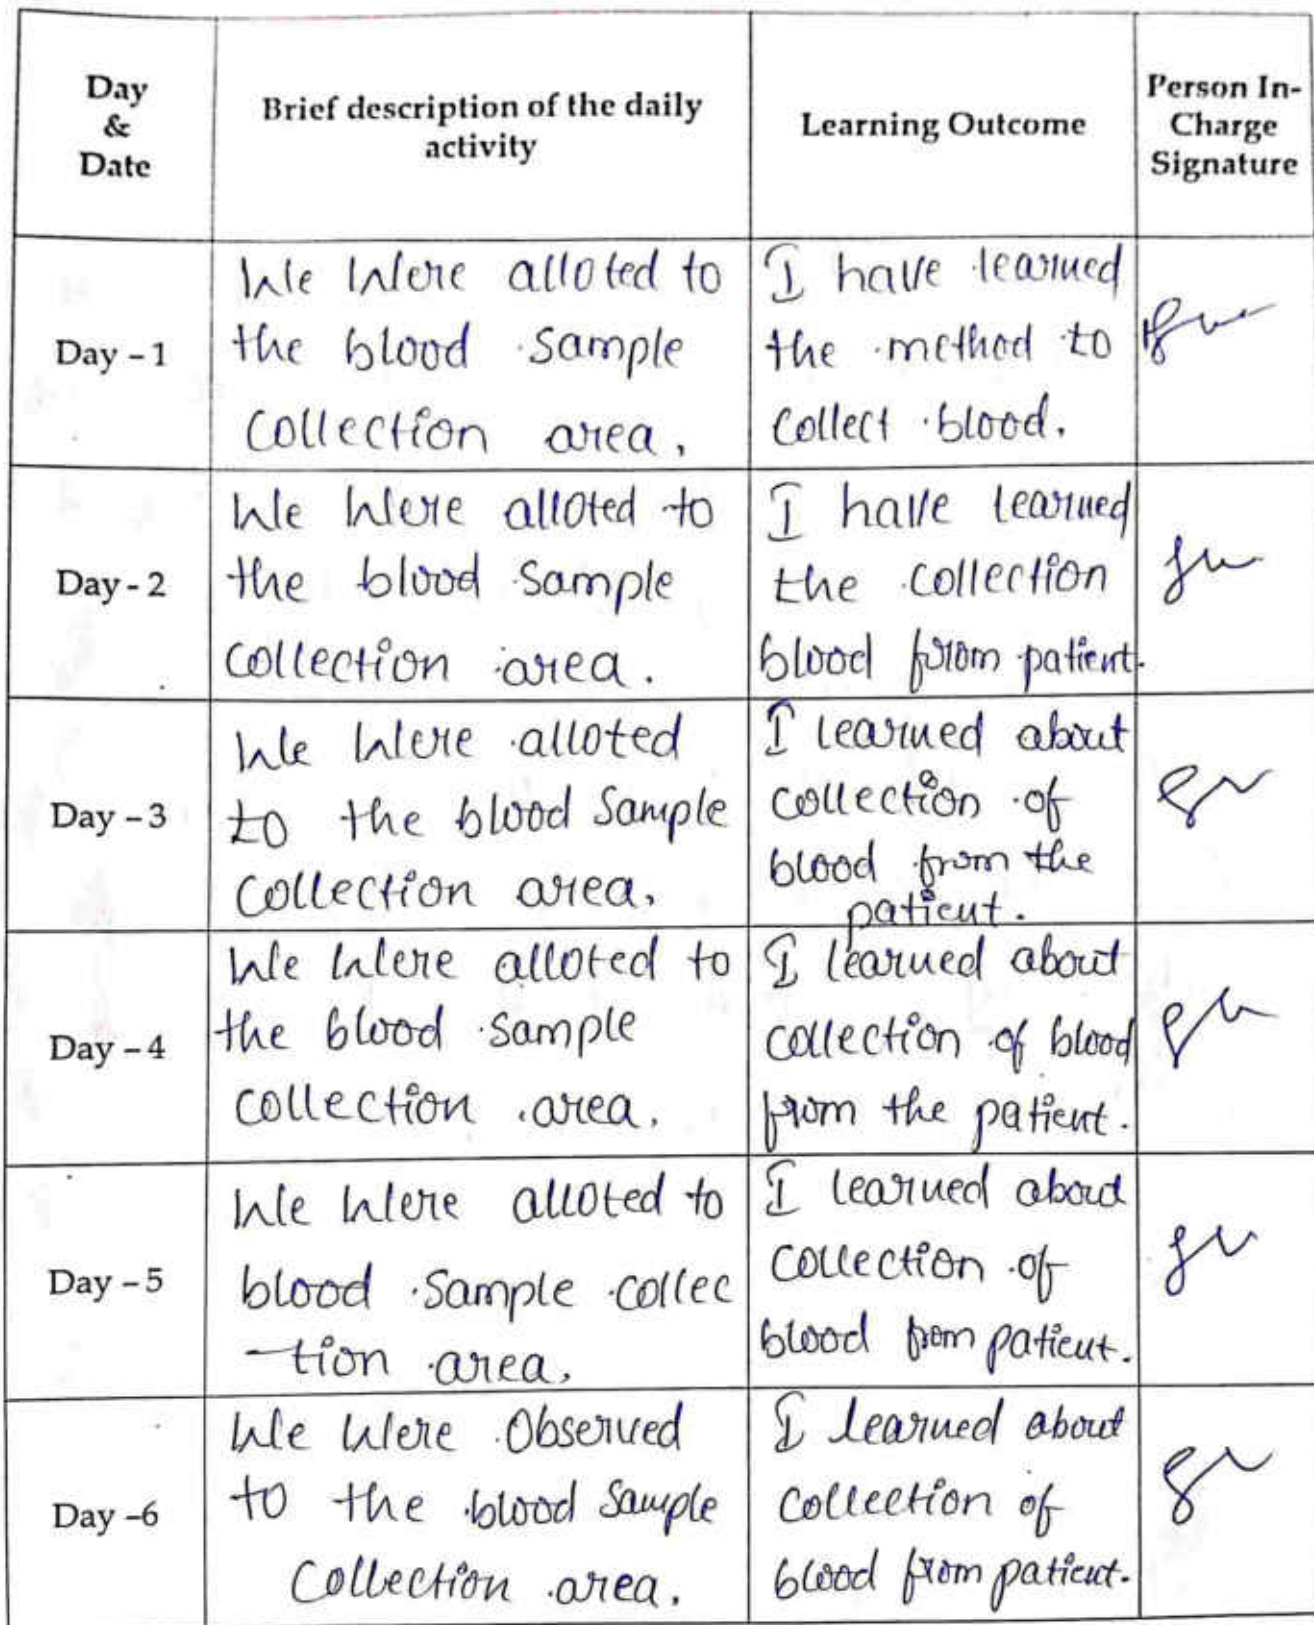 Day
&
Date
Brief description of the daily
activity
Learning Outcome
Person In-
Charge
Signature
Day - 1
We Were alloted to
the blood Sample
Collection area.
I have learned
the method to
Collect blood.
Day - 2
We Were alloted to
the blood Sample
collection area.
I have learned
the collection
blood from patient.
Day - 3
We Were alloted
to the blood Sample
Collection area.
I learned about
collection of
blood from the
patient.
Day - 4
We Were alloted to
the blood sample
collection area.
I learned about
collection of blood
from the patient.
Day - 5
We Were alloted to
blood Sample collec
-tion area.
I learned about
collection of
blood from patient.
Day -6
We Were Observed
to the blood Sample
Collection area.
I learned about
Collection of
blood from patient.